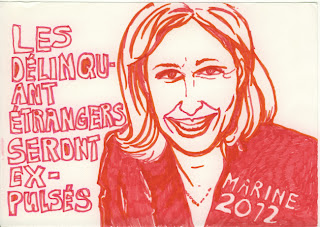 LES
DÉLINQU-
ANT
ÉTRANGERS
SERONT
EX-
PULSÉS
MARINE
2012